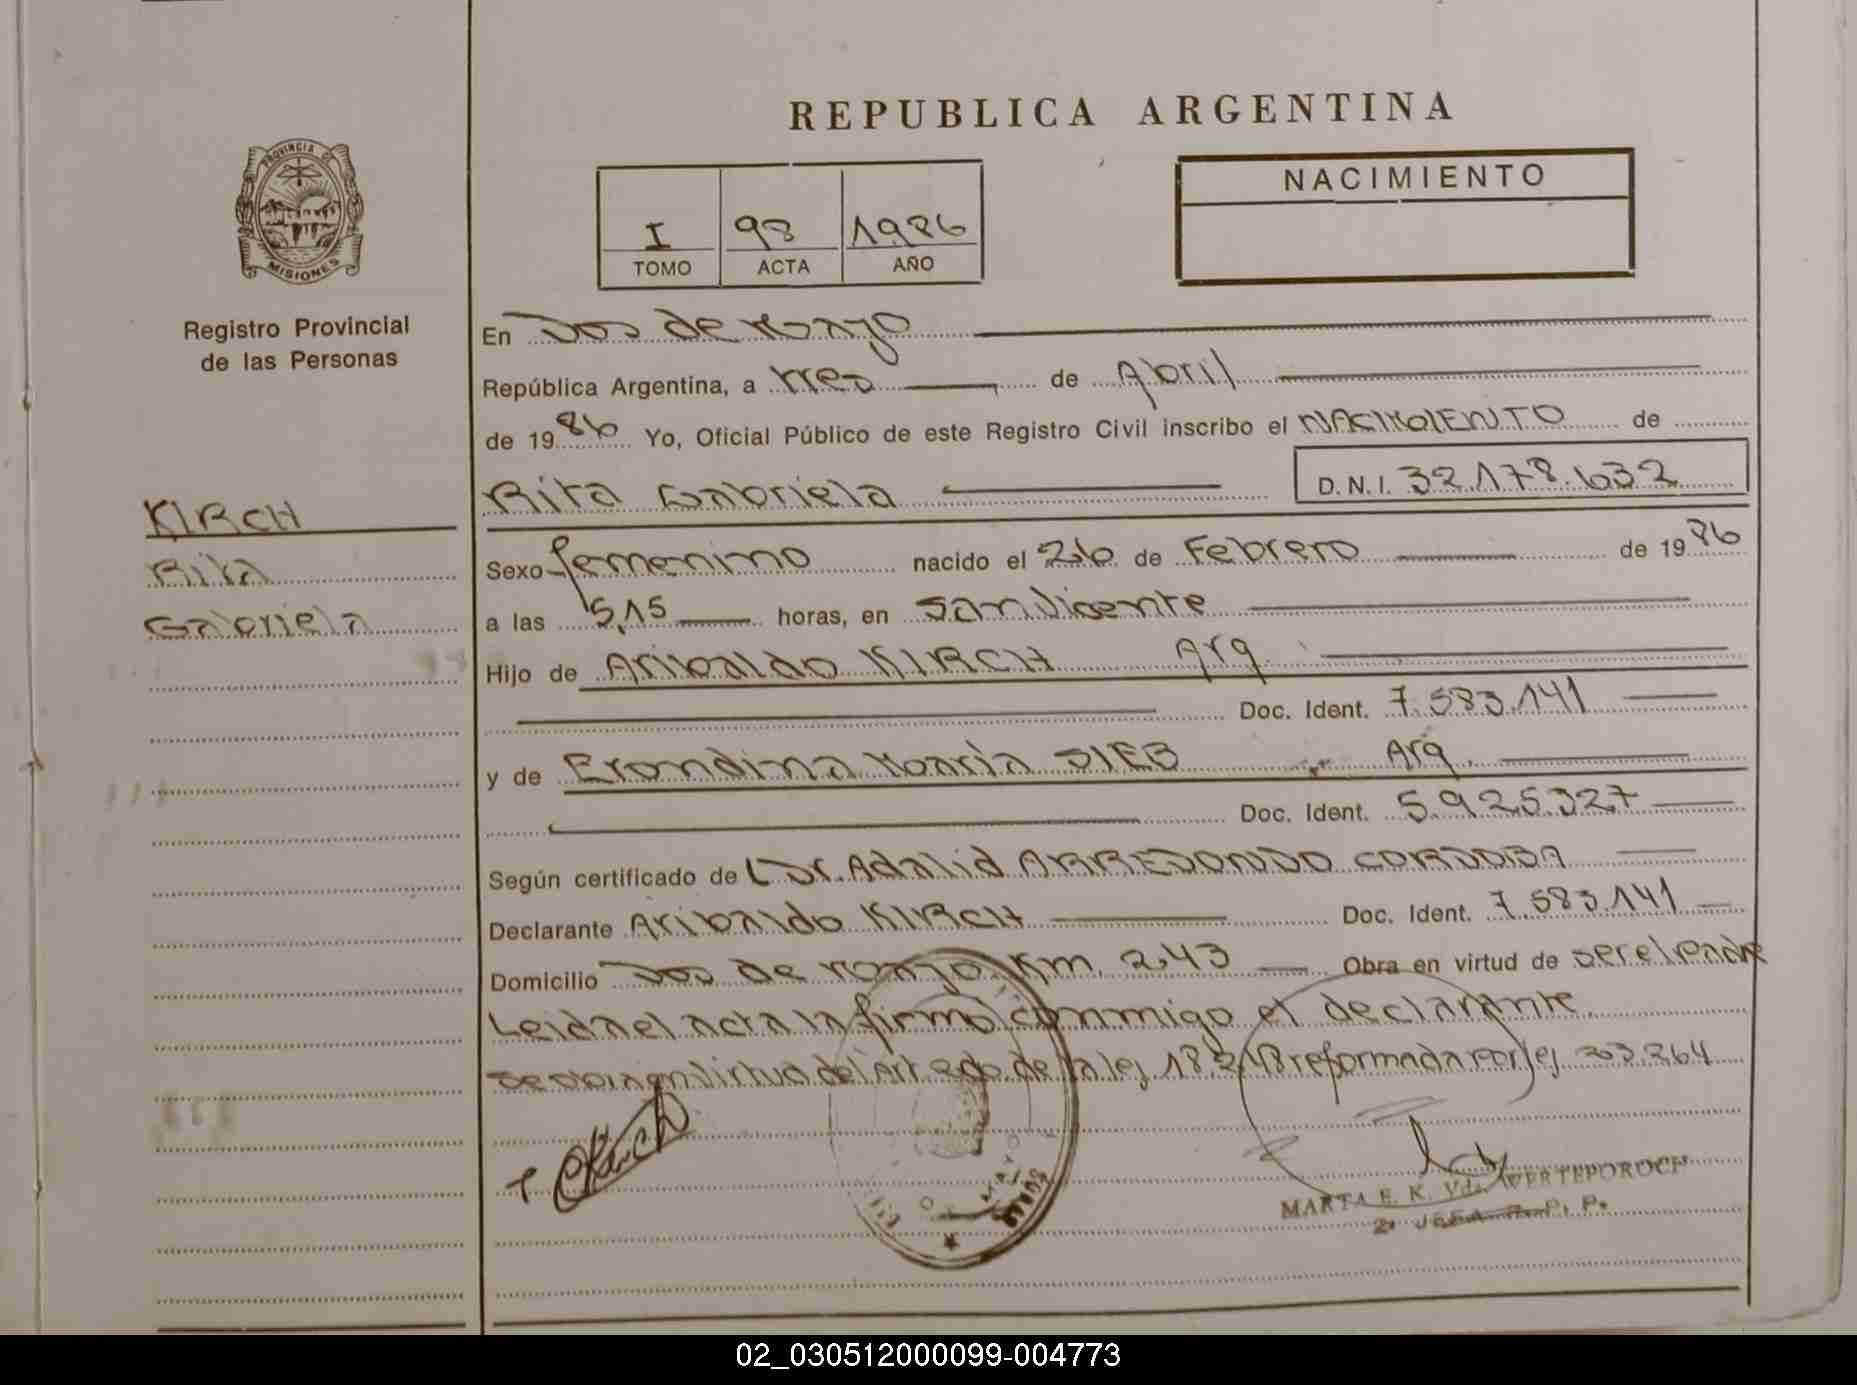 REPUBLICA ARGENTINA
PROVINCIA DE
MISIONES
Registro Provincial
de las Personas
I 98 1986
TOMO ACTA AÑO
NACIMIENTO
KIRCH
Rita
Gabriela
En Dos de Mayo
República Argentina, a tres de Abril
de 1986 Yo, Oficial Público de este Registro Civil inscribo el NACIMIENTO de
Rita Gabriela D.N.I. 32.178.632
Sexo femenino nacido el 26 de Febrero de 1986
a las 5,15 horas, en San Vicente
Hijo de Aribaldo KIRCH Arg
Doc. Ident. 7.583.141
y de Erondina Maria SIEB Arg.
Doc. Ident. 5.925.327
Según certificado de Dr. Adalid ARREDONDO CORDOBA
Declarante Aribaldo KIRCH Doc. Ident. 7.583.141
Domicilio Dos de Mayo Km. 243 Obra en virtud de ser el Padre
Leida el acta la firmó conmigo el declarante.
en virtud del Art de la ley 18.248 reformada por ley
MARTA E. K. Vda. WERTEPOROCH
P. P.
02_030512000099-004773